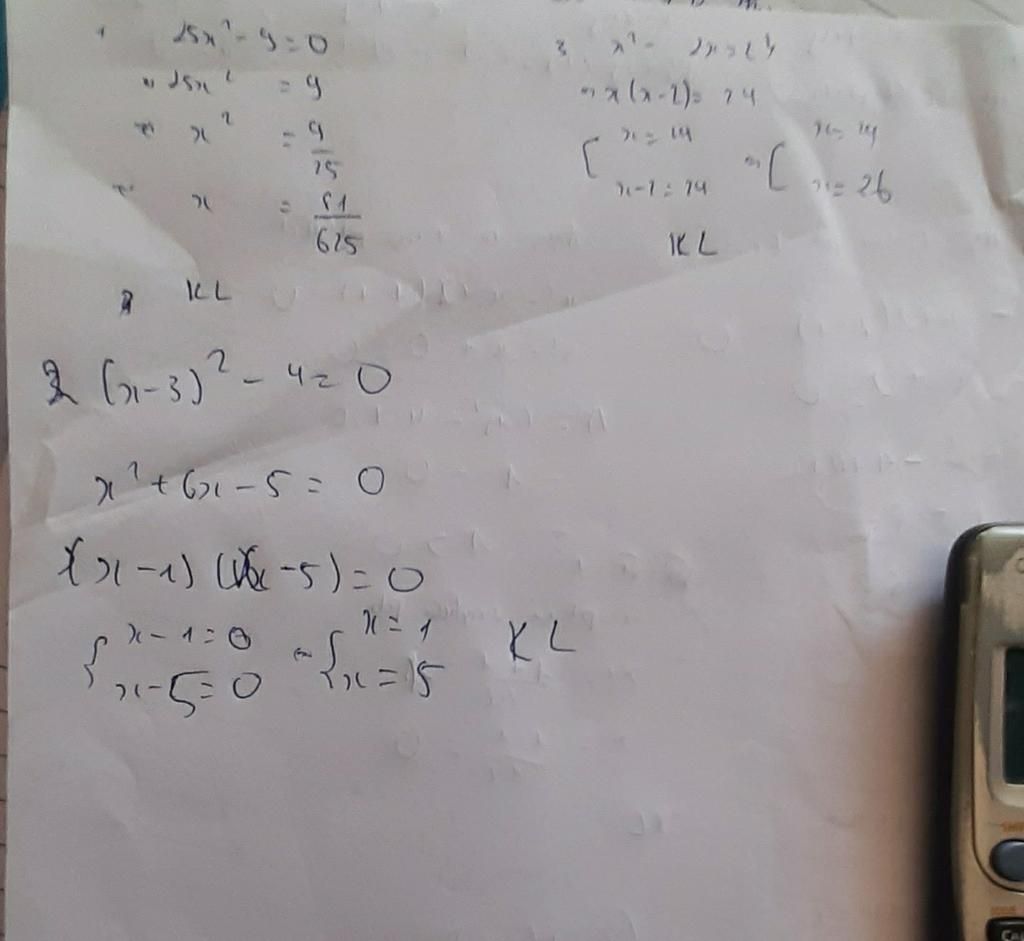 1 25x² - 9 = 0
⇔ 25x² = 9
⇔ x² = 9/25
⇔ x = 81/625
KL
3 x² - 2x = 24
⇔ x(x-2) = 24
[ x = 24 ⇔ [ x = 24
x-2 = 24 x = 26
KL
2 (x-3)² - 4 = 0
x² + 6x - 5 = 0
(x-1) (x-5) = 0
{ x-1 = 0 ⇔ { x = 1 KL
x-5 = 0 x = 5